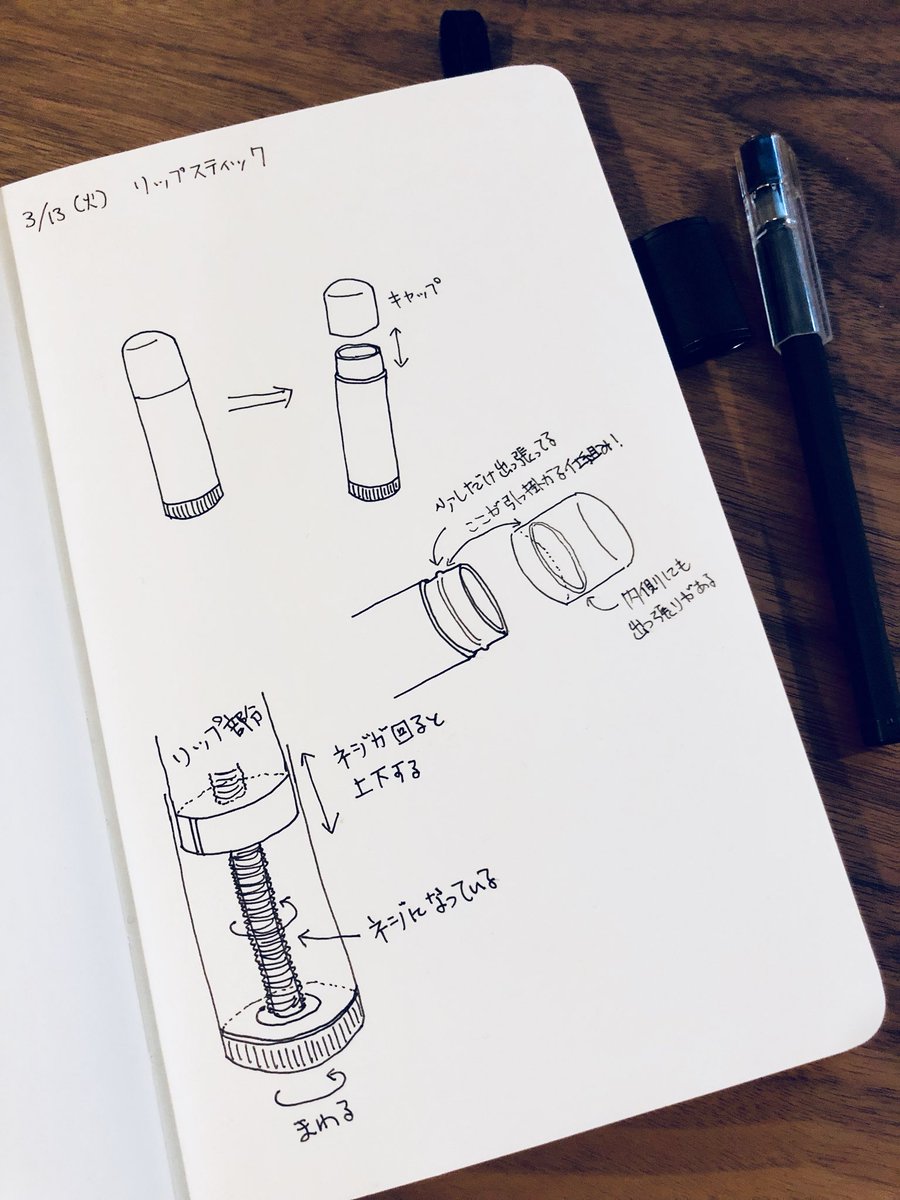 3/13(火) リップスティック
キャップ
少しだけ出っ張ってる
ここが引っ掛かる仕組み!
内側にも
出っ張りがある
リップ部分
ネジが回ると
上下する
ネジになっている
まわる